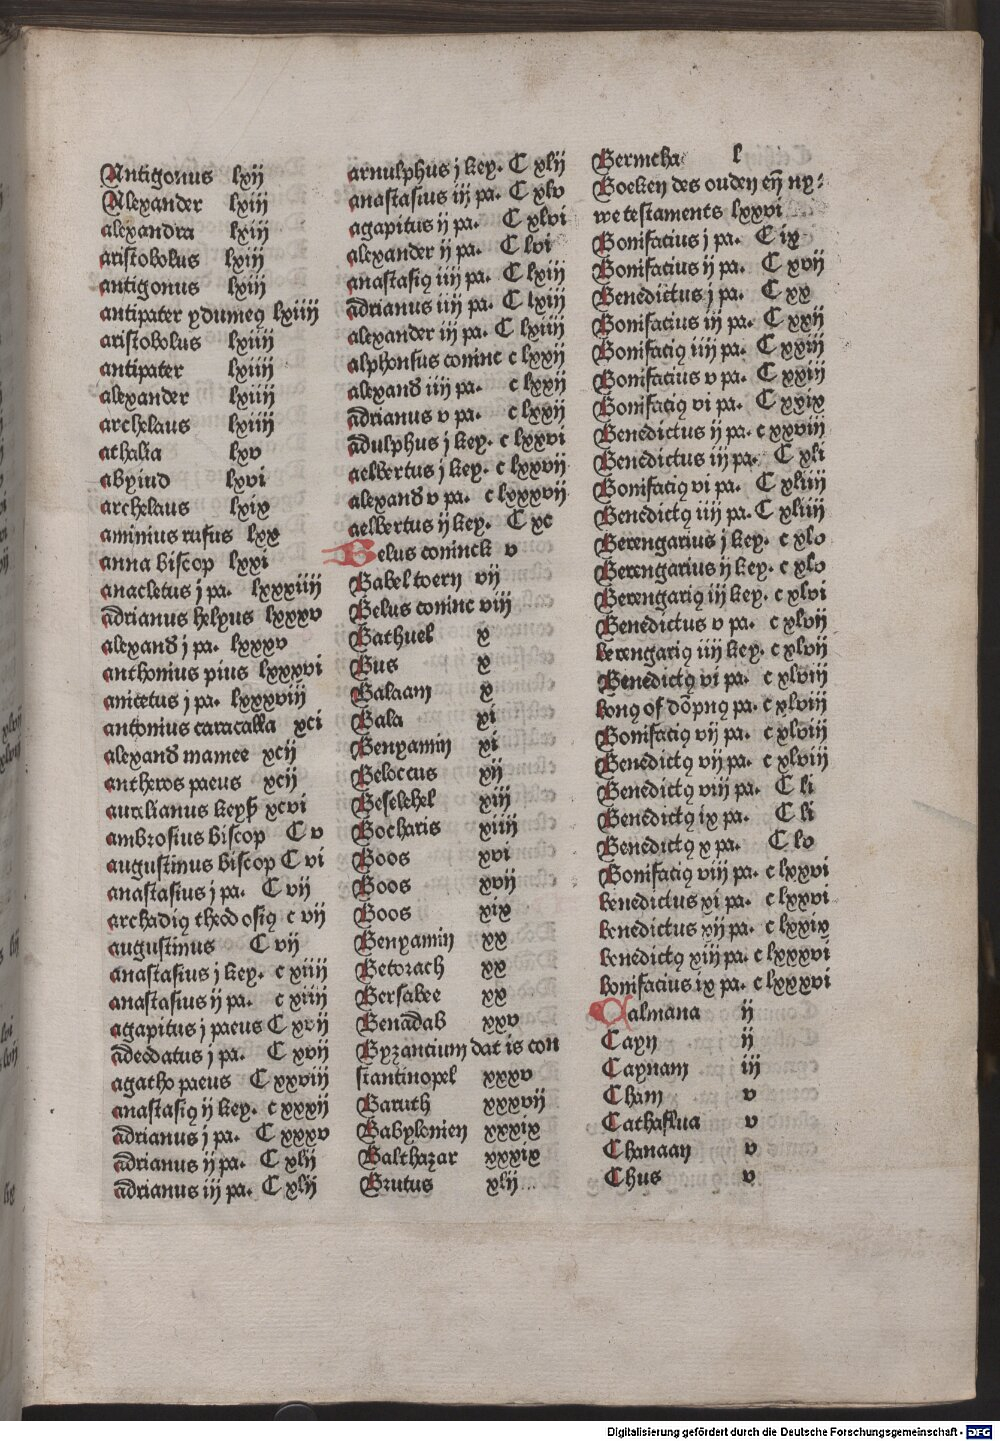 Antigonus lxij
Alexander lxiij
alexandra lxiij
aristobolus lxiij
antigonus lxiij
antipater ydumeꝯ lxiiij
aristobolus lxiiij
antipater lxiiij
alexander lxiiij
archelaus lxiiij
athalia lxv
abyiud lxvi
archelaus lxix
aminius rufus lxx
anna biscop lxxi
anacletus j pa. lxxxiiij
adrianus helyus lxxxv
alexand̄ j pa. lxxxv
anthonius pius lxxxvi
anicetus j pa. lxxxviij
antonius caracalla xci
alexand̄ mamee xcij
antheros paeus xcij
aurlianus keyß xcvi
ambrosius biscop C v
augustinus biscop C vi
anastasius j pa. C vij
archadiꝯ theodosiꝯ c vij
augustinus C vij
anastasius j key. c xiiij
anastasius ij pa. c xiiij
agapitus j paeus C xvij
adeodatus j pa. C xvij
agatho paeus C xxviij
anastasiꝯ ij key. c xxxij
adrianus j pa. C xxxv
adrianus ij pa. C xlij
adrianus iij pa. C xlij
arnulphus j key. C xlij
anastasius iij pa. C xlv
agapitus ij pa. C xlvi
alexander ij pa. C lvi
anastasiꝯ iiij pa. C lxiij
adrianus iiij pa. C lxiij
alexander iij pa. C lxiij
alphonsus coninc c lxxij
alexand̄ iiij pa. c lxxij
adrianus v pa. c lxxij
adulphus j key. c lxxvi
aelbertus j key. c lxxvij
alexand̄ v pa. c lxxxvij
aelbertus ij key. C xc
Belus coninck v
Babel toern vij
Belus coninc viij
Bathuel x
Bus x
Balaam x
Bala xi
Benyamin xi
Beloccus xij
Beselehel xiij
Bocharis xiiij
Boos xvi
Boos xvij
Boos xix
Benyamin xx
Betorach xx
Bersabee xx
Benadab xxv
Byzancium dat is con
stantinopel xxxv
Baruth xxxvij
Babylonien xxxix
Balthazar xxxix
Brutus xlij
Bermcha l
Boeken des ouden eñ ny⸗
we testaments lxxvi
Bonifacius j pa. C ix
Bonifacius ij pa. C xvij
Benedictus j pa. C xx
Bonifacius iij pa. C xxij
Bonifaciꝯ iiij pa. C xxiij
Bonifacius v pa. C xxiij
Bonifaciꝯ vi pa. C xxix
Benedictus ij pa. c xxviij
Benedictus iij pa. C xli
Bonifaciꝯ vi pa. C xliij
Benedictꝯ iiij pa. C xliij
Berengarius j key. c xlv
Berengarius ij key. c xlv
Berengariꝯ iij key. c xlvi
Benedictus v pa. c xlvij
berengariꝯ iiij key. c xlvij
Benedictꝯ vi pa. c xlviij
bonꝯ of dōpnꝯ pa. c xlviij
Bonifaciꝯ vij pa. c xlviij
Benedictꝯ vij pa. c xlviij
Benedictꝯ viij pa. C li
Benedictꝯ ix pa. C li
Benedictꝯ x pa. C lv
Bonifaciꝯ viij pa. c lxxvi
benedictus xi pa. c lxxvi
benedictus xij pa. c lxxix
benedictꝯ xiij pa. c lxxxvi
bonifacius ix pa. c lxxxvi
Calmana ij
Cayn ij
Caynam iij
Cham v
Cathaflua v
Chanaan v
Chus v
Digitalisierung gefördert durch die Deutsche Forschungsgemeinschaft - DFG